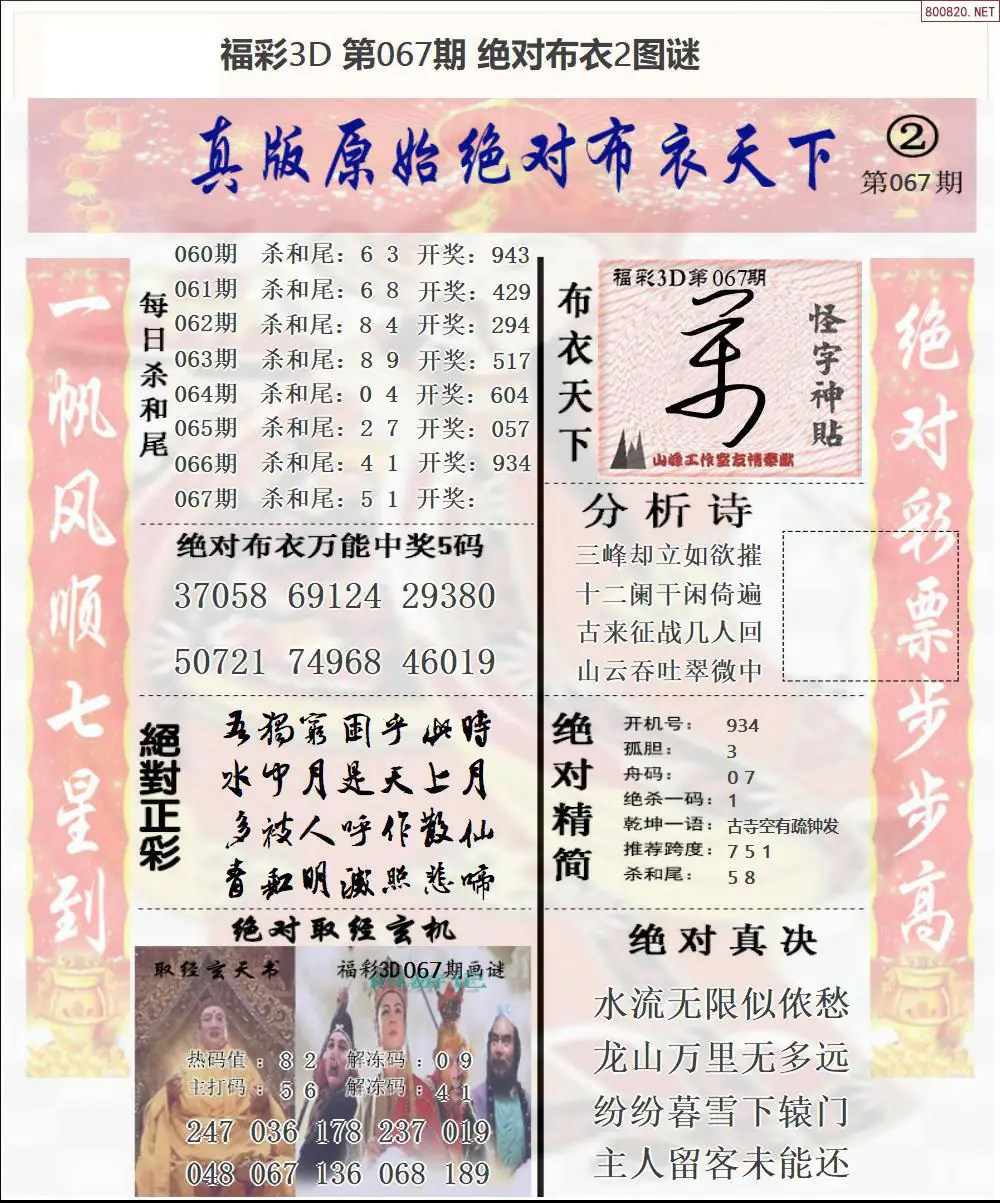 800820.NET
福彩3D 第067期 绝对布衣2图谜
真版原始绝对布衣天下
②
第067期
一帆风顺七星到
每日杀和尾
060期 杀和尾：6 3 开奖：943
061期 杀和尾：6 8 开奖：429
062期 杀和尾：8 4 开奖：294
063期 杀和尾：8 9 开奖：517
064期 杀和尾：0 4 开奖：604
065期 杀和尾：2 7 开奖：057
066期 杀和尾：4 1 开奖：934
067期 杀和尾：5 1 开奖：
绝对布衣万能中奖5码
37058 69124 29380
50721 74968 46019
絕對正彩
吾獨窮困乎此時
水中月是天上月
多被人呼作散仙
青虹明滅照悲啼
绝对取经玄机
取经玄天书
福彩3D067期画谜
热码值：8 2 解冻码：0 9
主打码：5 6 解冻码：4 1
247 036 178 237 019
048 067 136 068 189
布衣天下
福彩3D第067期
怪字神貼
山峰工作室友情奉献
分析诗
三峰却立如欲摧
十二阑干闲倚遍
古来征战几人回
山云吞吐翠微中
绝对精简
开机号： 934
孤胆： 3
舟码： 0 7
绝杀一码：1
乾坤一语：古寺空有疏钟发
推荐跨度：7 5 1
杀和尾： 5 8
绝对真决
水流无限似侬愁
龙山万里无多远
纷纷暮雪下辕门
主人留客未能还
绝对彩票步步高